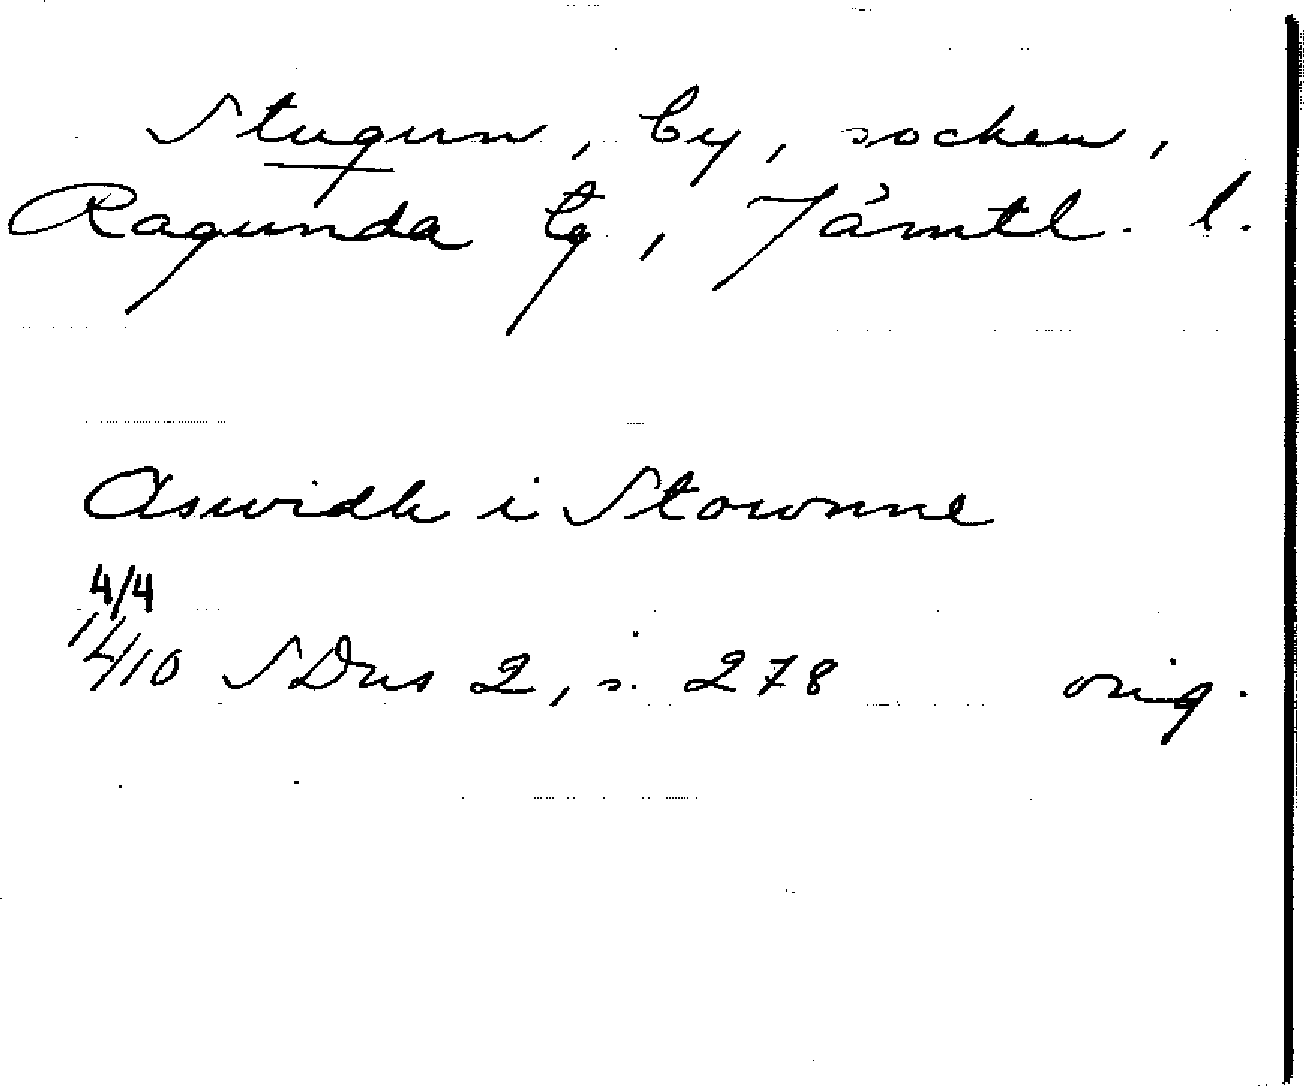 Stugun, by, socken,
Ragunda tg, Jämtl. l.
Aswidh i Stownne
4/4
14/10 SDns 2, s. 278 orig.